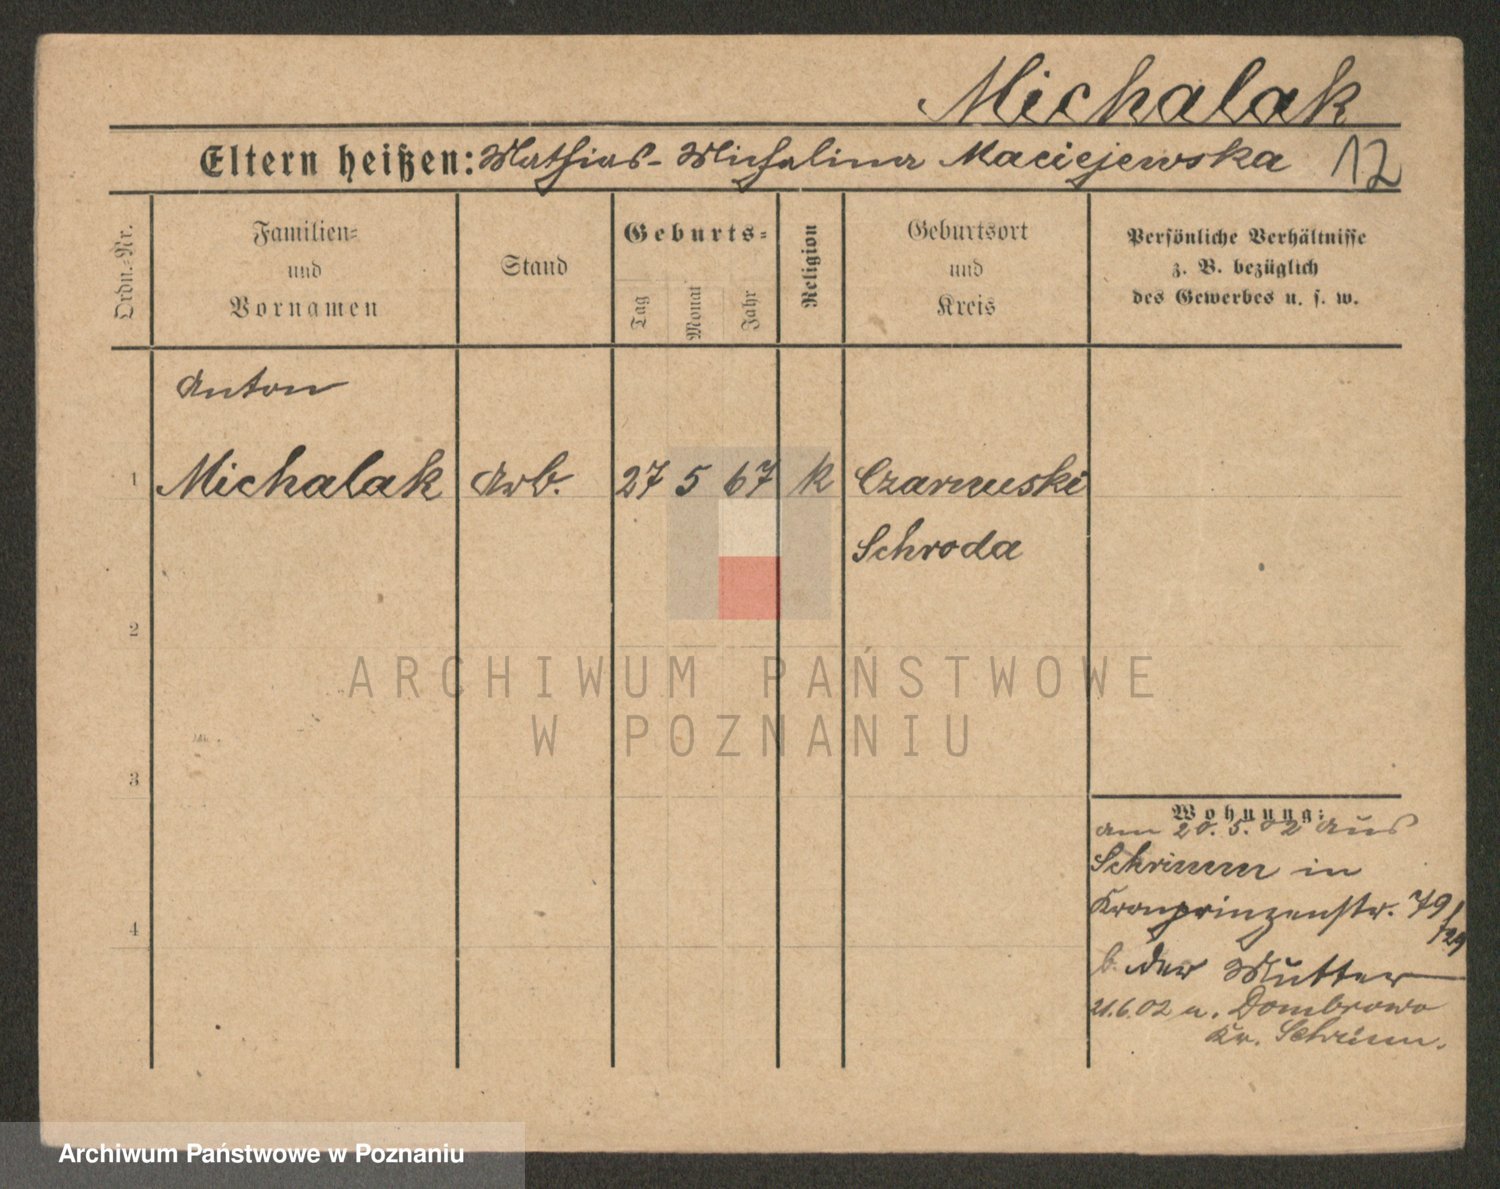 Michalak
Eltern heißen: Mathias - Michalina Maciejewska 12
Ordn.-Nr.
Familien-
und
Vornamen
Stand
Geburts-
Tag
Monat
Jahr
Religion
Geburtsort
und
Kreis
Persönliche Verhältnisse
z. B. bezüglich
des Gewerbes u. s. w.
Anton
1 Michalak Arb. 27 5 67 k Czarnuski
Schroda
2
ARCHIWUM PAŃSTWOWE
W POZNANIU
3
Wohnung:
am 20.5.02 aus
Schrimm in
Kronprinzenstr. 79/
129
4
b. der Mutter
21.6.02 n. Dombrowo
Kr. Schrimm.
Archiwum Państwowe w Poznaniu